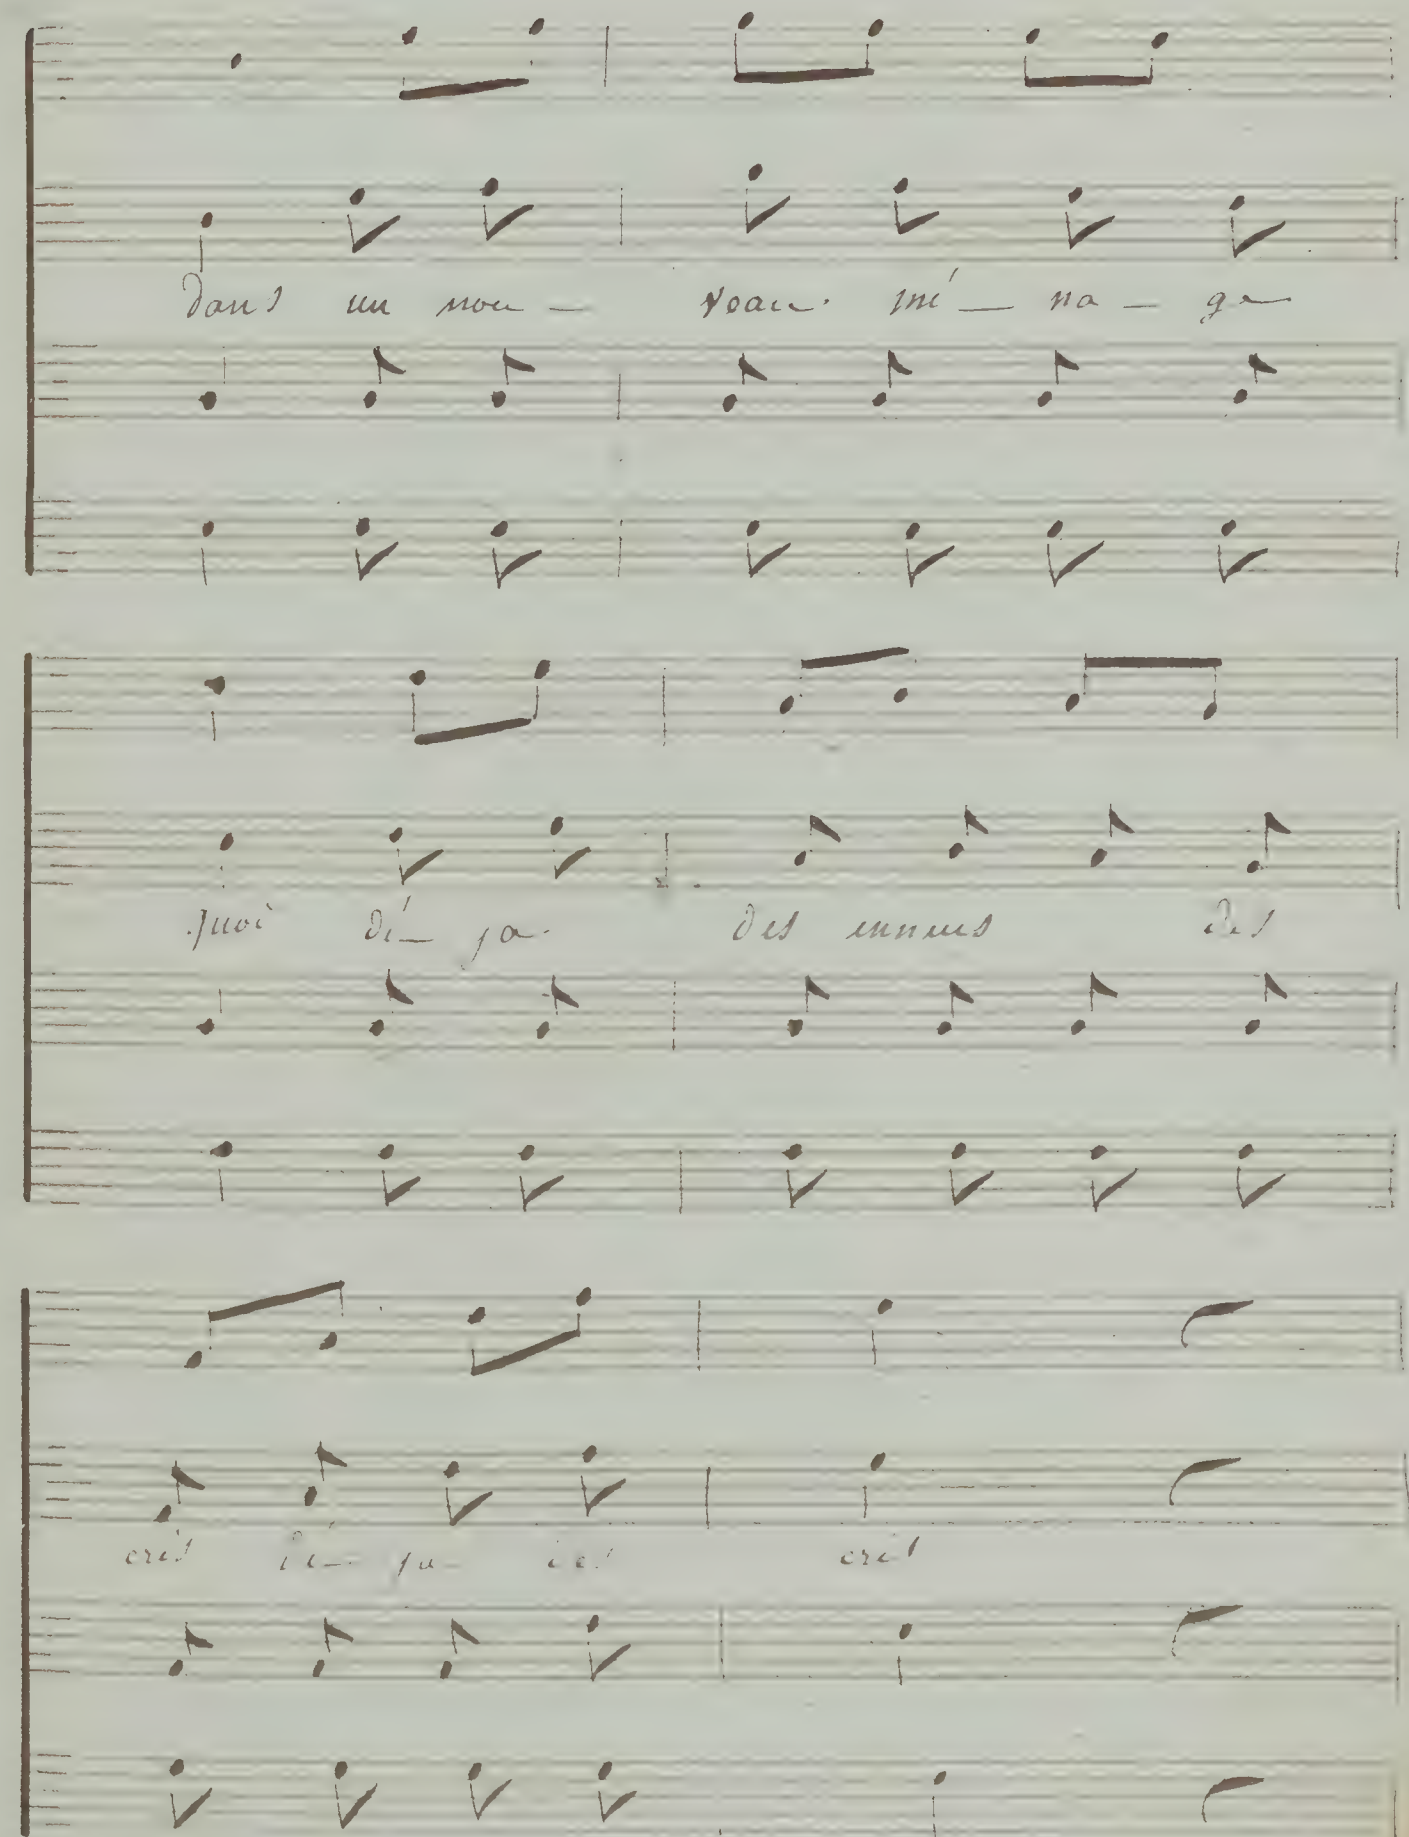 dans un nou — veau mé — na — ge
quoi dé — ja des ennuis des
cris dé — ja des cris